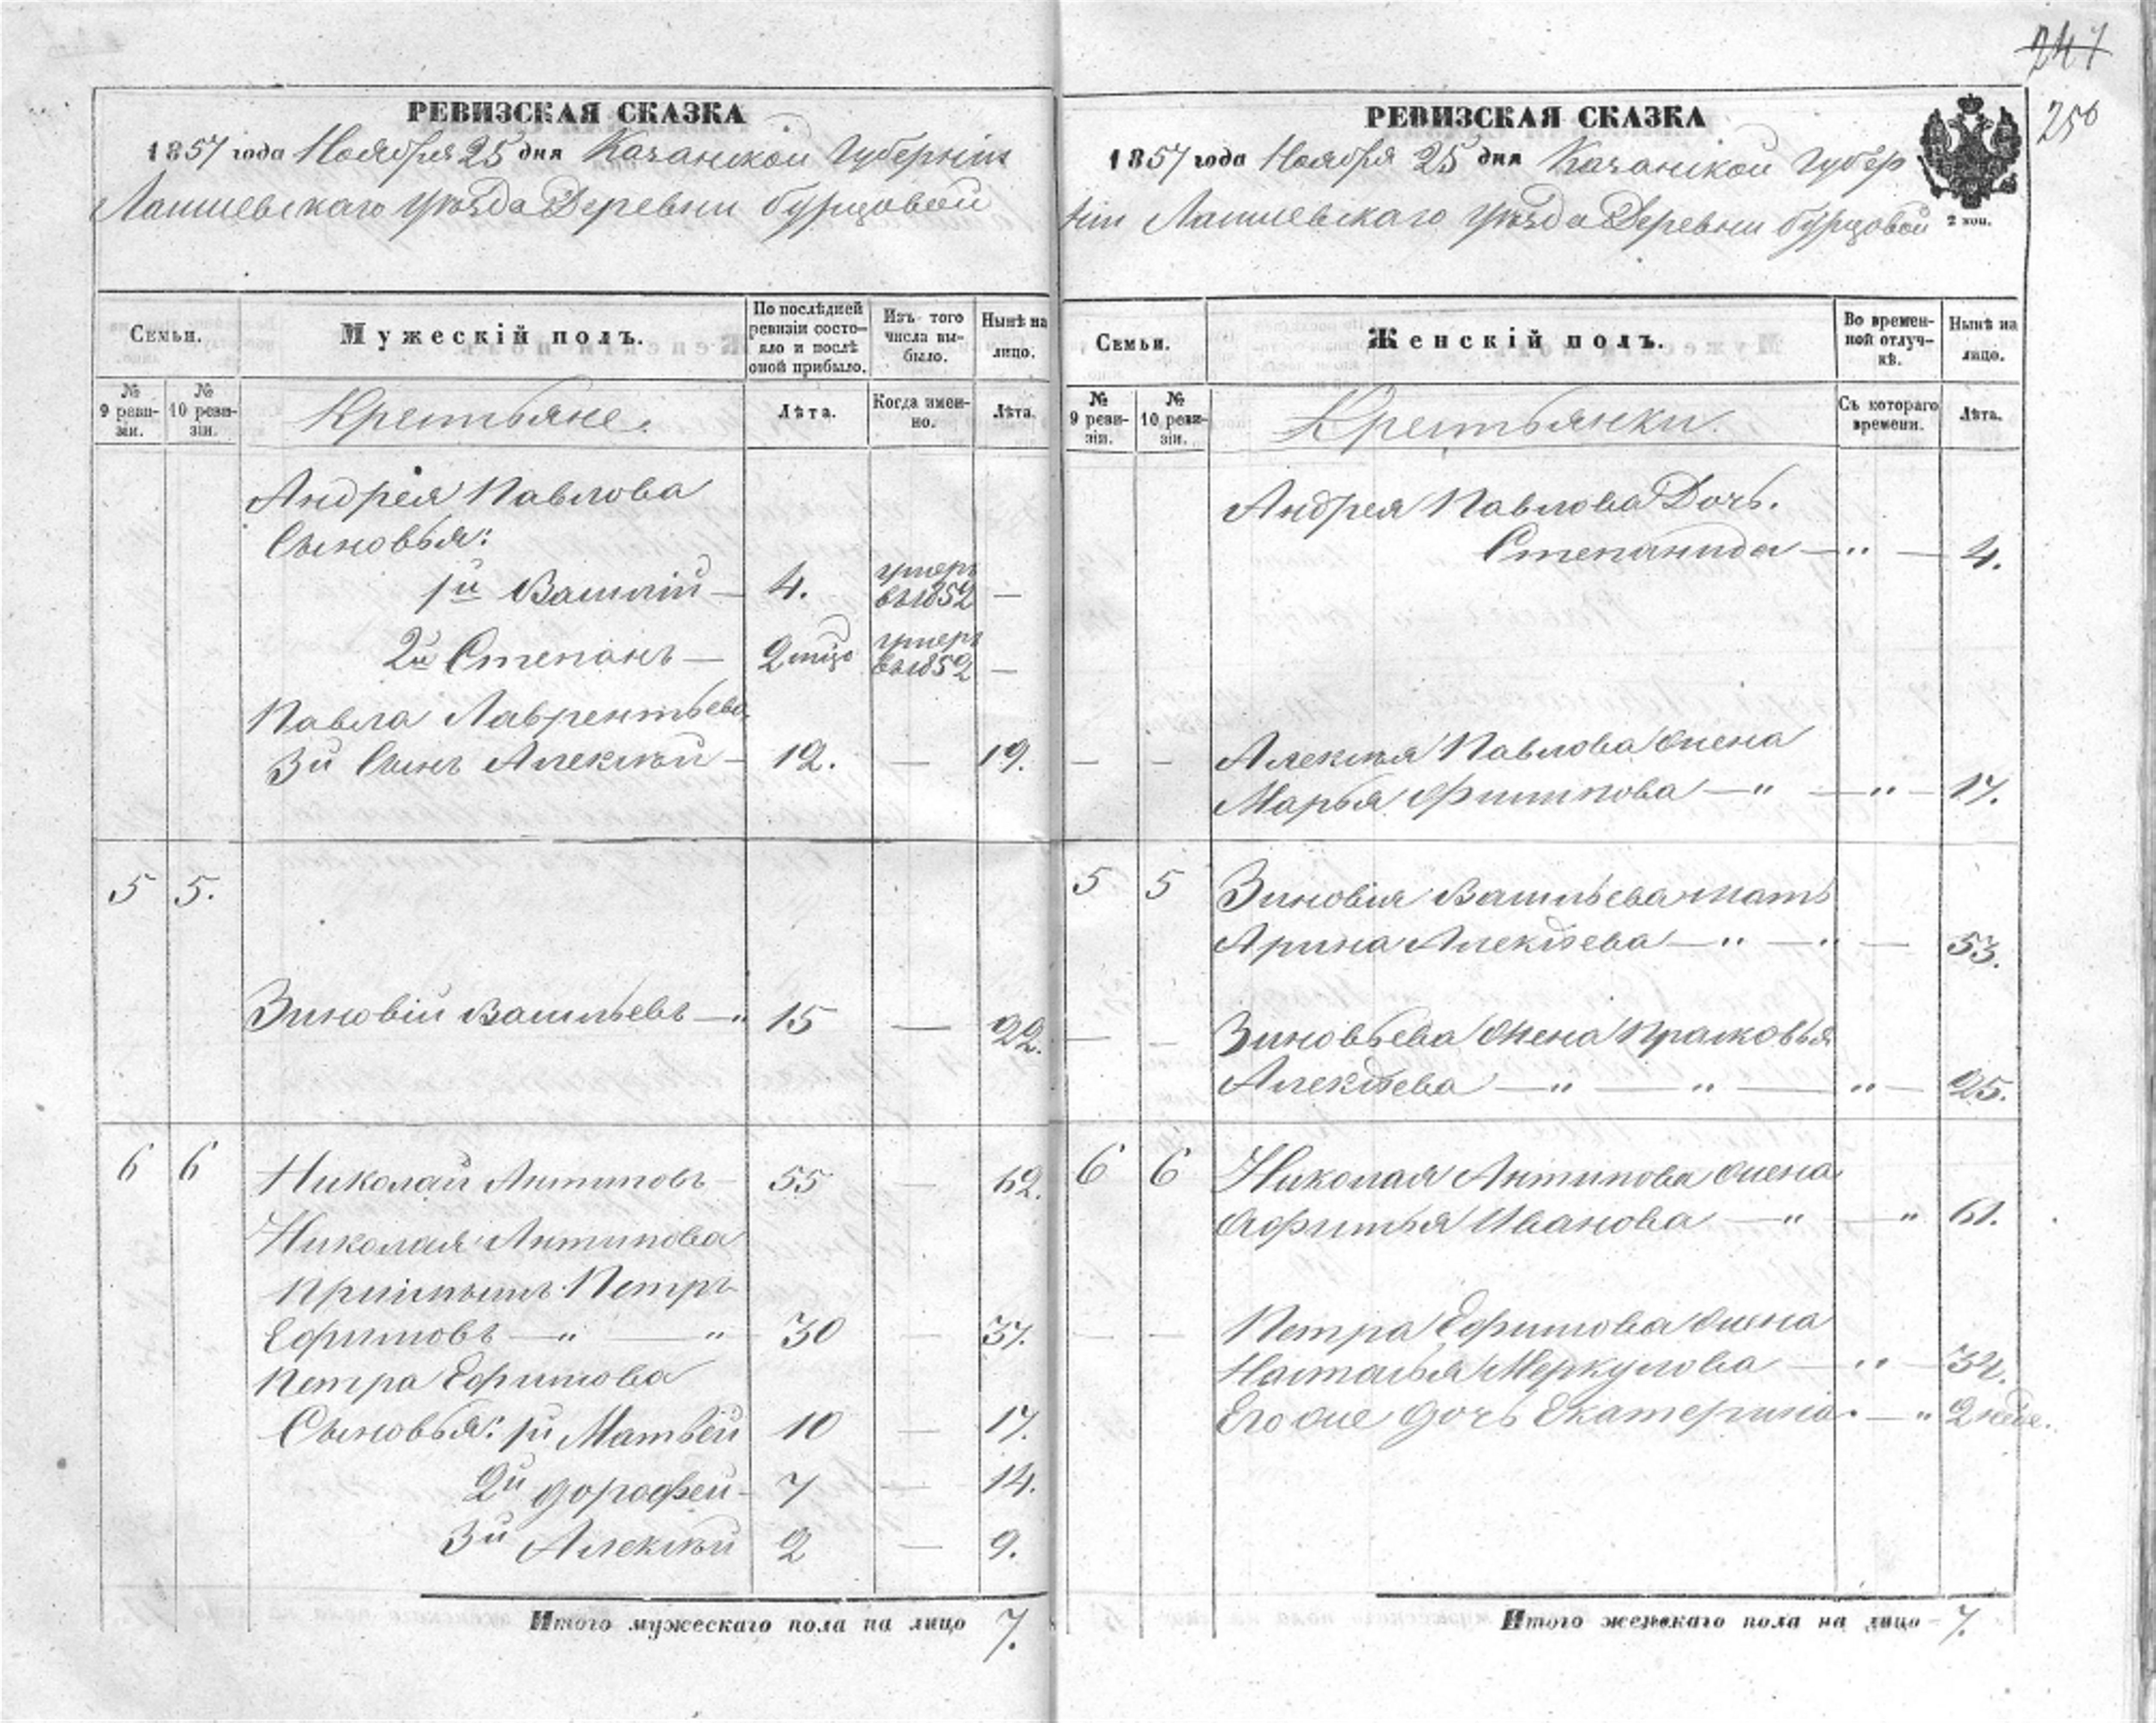 247
250
РЕВИЗСКАЯ СКАЗКА
1857 года Ноября 25 дня Казанской Губернии
Лаишевскаго уѣзда Деревни бурцовой
Семьи.
Мужескій полъ.
По послѣдней ревизіи состояло и послѣ оной прибыло.
Изъ того числа выбыло.
Нынѣ на лицо.
№ 9 ревизіи.
№ 10 ревизіи.
Крестьяне.
Лѣта.
Когда именно.
Лѣта.
Андрея Павлова
Сыновья:
1й Василій — 4. умеръ въ 1852 —
2й Степанъ — 2 умеръ въ 1852 —
Павла Лаврентьева
3й Сынъ Алексѣй — 12. — 19.
5 5.
Зиновій Васильевъ — " 15 — 22.
6 6 Николай Антиповъ — 55 — 62.
Николая Антипова
Пріимышъ Петръ
Ефимовъ — " — " 30 — 37.
Петра Ефимова
Сыновья: 1й Матвѣй 10 — 17.
2й Дорофей — 7 — 14.
3й Алексѣй 2 — 9.
Итого мужескаго пола на лицо 7.
РЕВИЗСКАЯ СКАЗКА
1857 года Ноября 25 дня Казанской Губер
ніи Лаишевскаго уѣзда Деревни бурцовой
2 коп.
Семьи.
Женскій полъ.
Во временной отлучкѣ.
Нынѣ на лицо.
№ 9 ревизіи.
№ 10 ревизіи.
Крестьянки.
Съ котораго времени.
Лѣта.
Андрея Павлова Дочь.
Степанида — " — 4.
— — Алексѣя Павлова жена
Марья Филипова — " — " — 17.
5 5 Зиновія Васильева мать
Арина Алексѣева — " — " — 53.
— — Зиновьева жена Прасковья
Алексѣева — " — " — " — 25.
6 6 Николая Антипова жена
Афимья Иванова — " — " 61.
— — Петра Ефимова жена
Наталья Меркулова — " — 34.
Его же дочь Екатерина. — " 2 неде.
Итого женскаго пола на лицо — 7.